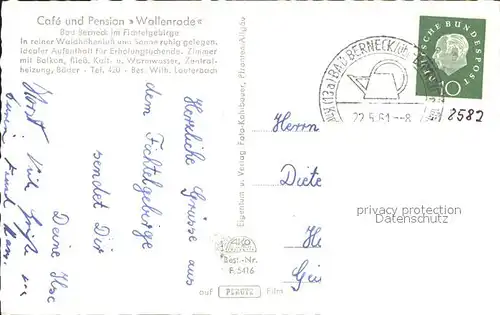 Café und Pension »Wallenrode«
Bad Berneck im Fichtelgebirge
In reiner Waldhöhenluft und Sonne ruhig gelegen.
Idealer Aufenthalt für Erholungsuchende. Zimmer
mit Balkon, fließ. Kalt- u. Warmwasser, Zentral-
heizung, Bäder - Tel. 420 - Bes. Wilh. Lauterbach
Herzliche Grüsse aus
dem Fichtelgebirge
sendet Dir
Deine Ilse
Horst
Eigentum u. Verlag Foto-Kohlbauer, Pfronten-Allgäu
Best.-Nr.
F. 5416
auf PERUTZ Film
(13a) BAD BERNECK
22.5.61.--8
DEUTSCHE BUNDESPOST
10
2582
Herrn
Diete
He
Gei
privacy protection
Datenschutz